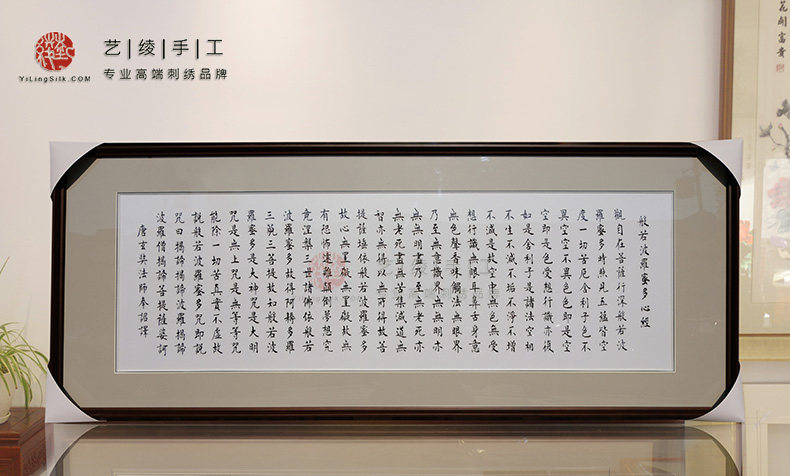 艺|绫|手|工
专业高端刺绣品牌
YiLingSilk.COM
花開富貴
般若波羅蜜多心經
觀自在菩薩行深般若波
羅蜜多時照見五蘊皆空
度一切苦厄舍利子色不
異空空不異色色即是空
空即是色受想行識亦復
如是舍利子是諸法空相
不生不滅不垢不淨不增
不減是故空中無色無受
想行識無眼耳鼻舌身意
無色聲香味觸法無眼界
乃至無意識界無無明亦
無無明盡乃至無老死亦
無老死盡無苦集滅道無
智亦無得以無所得故菩
提薩埵依般若波羅蜜多
故心無罣礙無罣礙故無
有恐怖遠離顛倒夢想究
竟涅槃三世諸佛依般若
波羅蜜多故得阿耨多羅
三藐三菩提故知般若波
羅蜜多是大神咒是大明
咒是無上咒是無等等咒
能除一切苦真實不虛故
說般若波羅蜜多咒即說
咒曰揭諦揭諦波羅揭諦
波羅僧揭諦菩提薩婆訶
唐玄奘法師奉詔譯